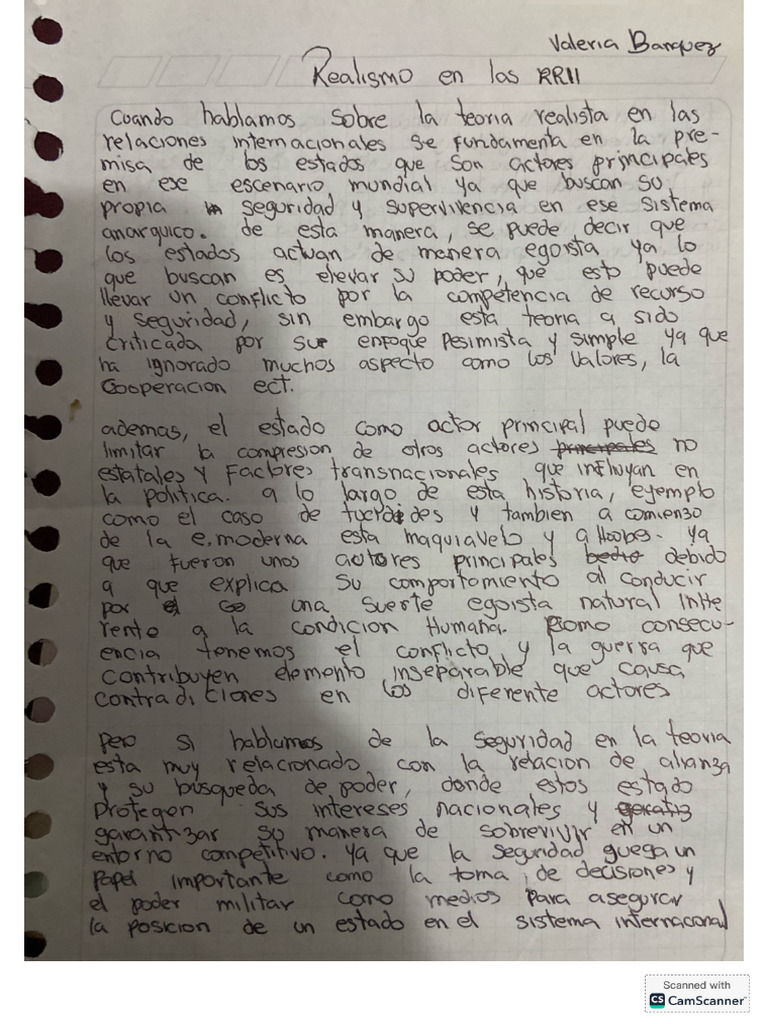 Valeria Banquez
Realismo en las RRII
Cuando hablamos sobre la teoria realista en las
relaciones internacionales se fundamenta en la pre-
misa de los estados que son actores principales
en ese escenario mundial ya que buscan su
propia seguridad y supervivencia en ese sistema
anarquico. de esta manera, se puede decir que
los estados actuan de manera egoista ya lo
que buscan es elevar su poder, que esto puede
llevar un conflicto por la competencia de recurso
y seguridad, sin embargo esta teoria a sido
criticada por su enfoque pesimista y simple ya que
ha ignorado muchos aspecto como los valores, la
Cooperacion ect.
ademas, el estado como actor principal puede
limitar la compresion de otros actores principales no
estatales y factores transnacionales que influyan en
la politica. a lo largo de esta historia, ejemplo
como el caso de tucidides y tambien a comienzo
de la e. moderna esta maquiavelo y a Hobbes. ya
que fueron unos actores principales debido
a que explica su comportamiento al conducir
por una suerte egoista natural inhe
rente a la condicion Humana. como consecu-
encia tenemos el conflicto y la guerra que
contribuyen elemento inseparable que causa
contradiciones en los diferente actores
pero si hablamos de la seguridad en la teoria
esta muy relacionado con la relacion de alianza
y su busqueda de poder, donde estos estado
protegen sus intereses nacionales y
garantizar su manera de sobrevivir en un
entorno competitivo. ya que la seguridad guega un
papel importante como la toma de decisiones y
el poder militar como medios para asegurar
la posicion de un estado en el sistema internaconal
Scanned with
CS CamScanner